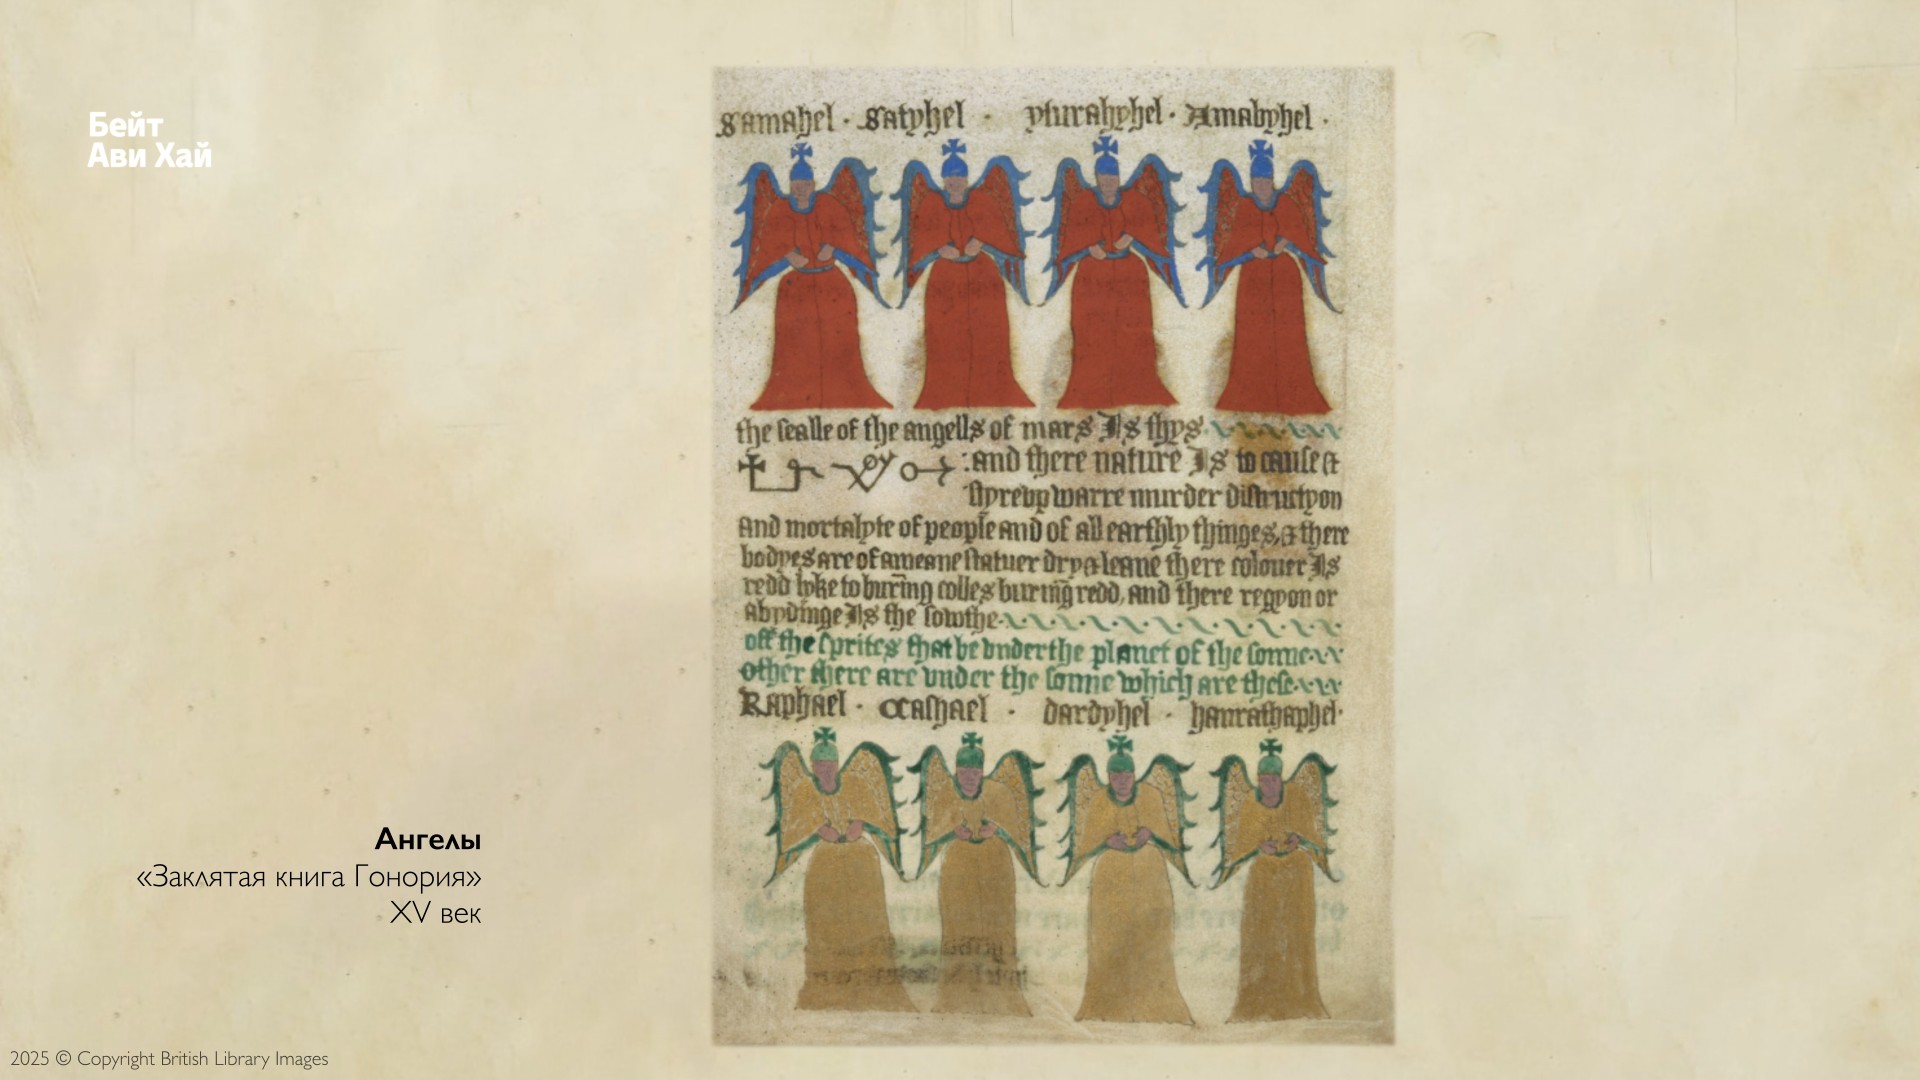 Бейт
Ави Хай
Samahel · Satyhel · yturahyhel · Amabyhel ·
the sealle of the angells of mars Is thys
:and there nature Is to cause &
styreup warre murder distructyon
and mortalyte of people and of all earthly thinges, & there
bodyes are of a meane statuer dry & leane there colouer Is
redd lyke to burīng colles burīng redd, and there regyon or
abydinge Is the sowthe
off the sprites that be vnder the planet of the sonne
other there are vnder the sonne which are these
Raphael · Cashael · dardyhel · hanrathaphel·
Ангелы
«Заклятая книга Гонория»
XV век
2025 © Copyright British Library Images